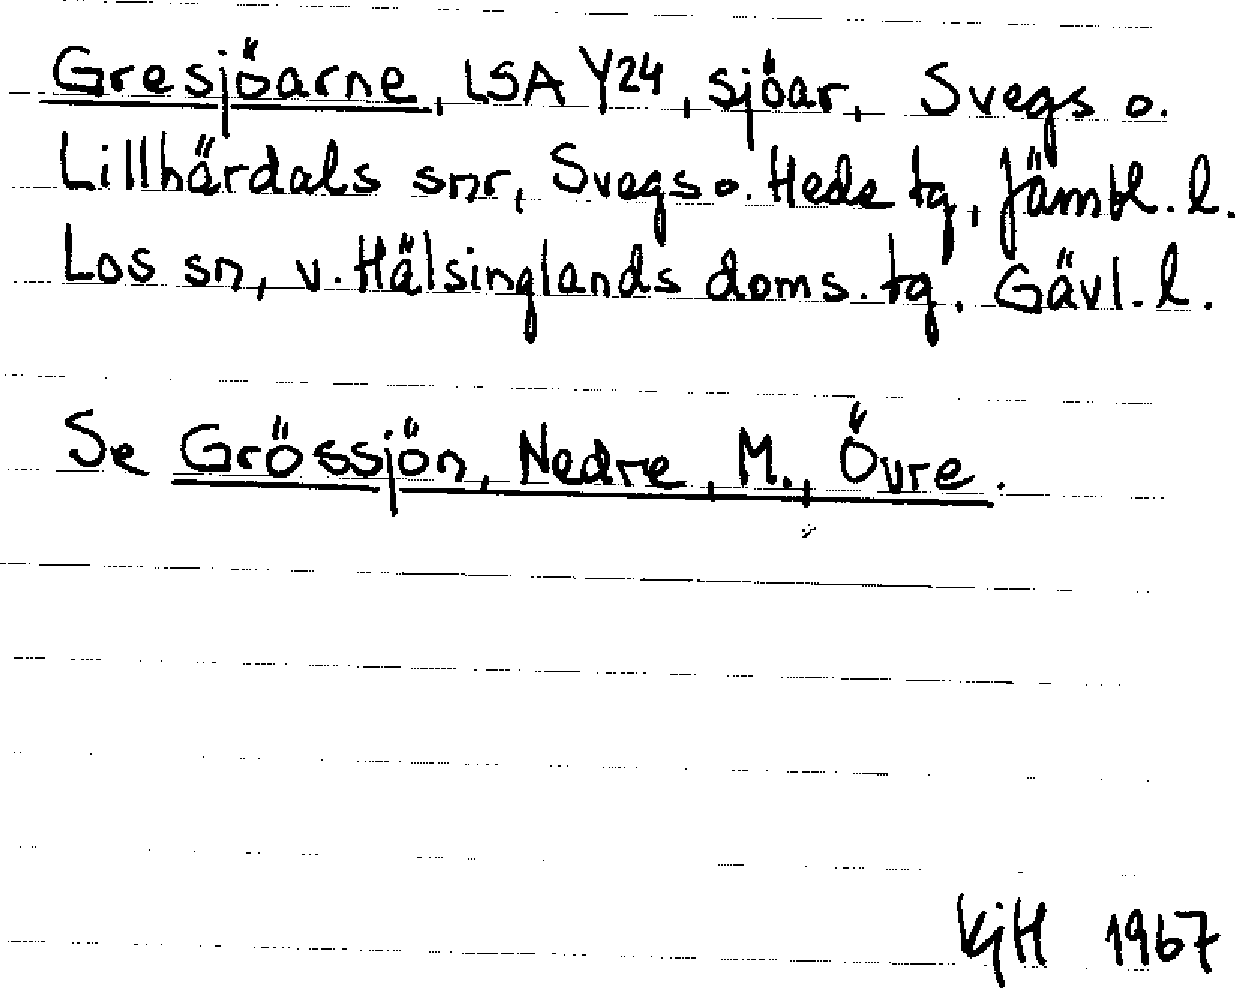 Gresjöarne, LSA Y24, sjöar, Svegs o.
Lillhärdals snr, Svegs o. Hede tg, Jämtl. l.
Los sn, v. Hälsinglands doms. tg. Gävl. l.
Se Grössjön, Nedre, M., Övre.
KjH 1967